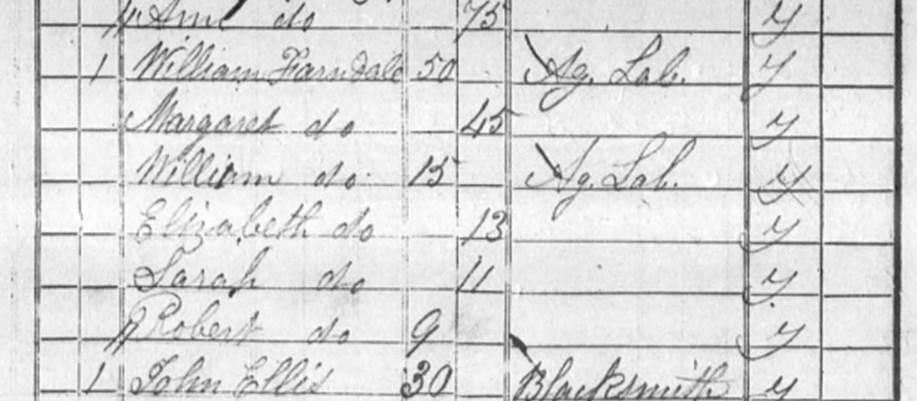 Ann do 75 y
1 William Farndale 50 Ag. Lab. y
Margaret do 45 y
William do 15 Ag. Lab. y
Elizabeth do 13 y
Sarah do 11 y
Robert do 9 y
1 John Ellis 30 Blacksmith y